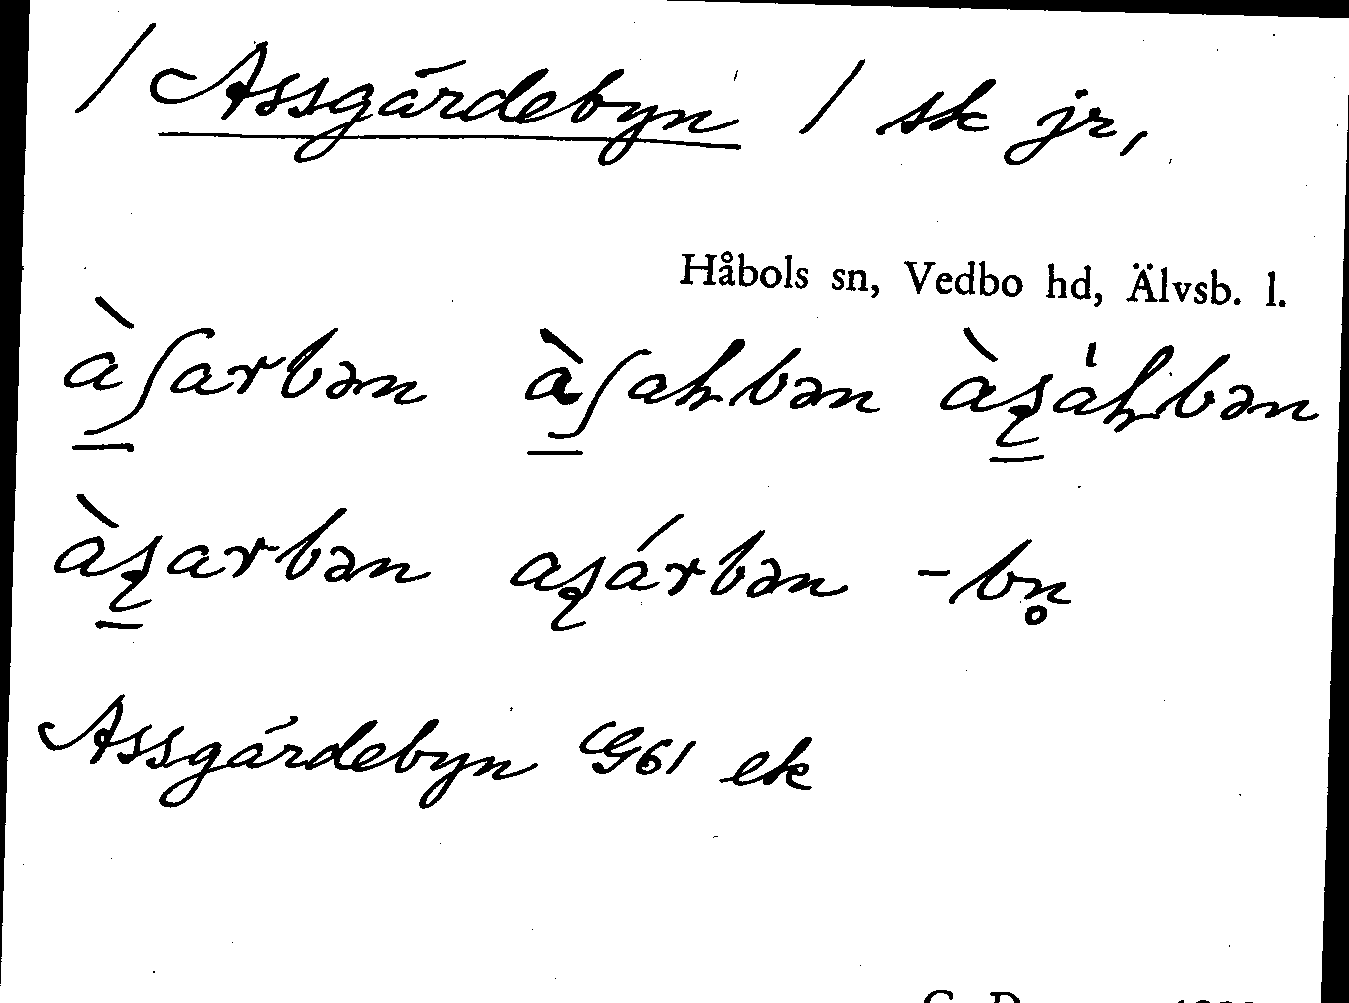 / Assgärdebyn / sk jr,
Håbols sn, Vedbo hd, Älvsb. l.
àʃarbən àʃaꜧbən àʂáꜧbən
àʂarbən aʂárbən -bn̥
Assgärdebyn G61 ek